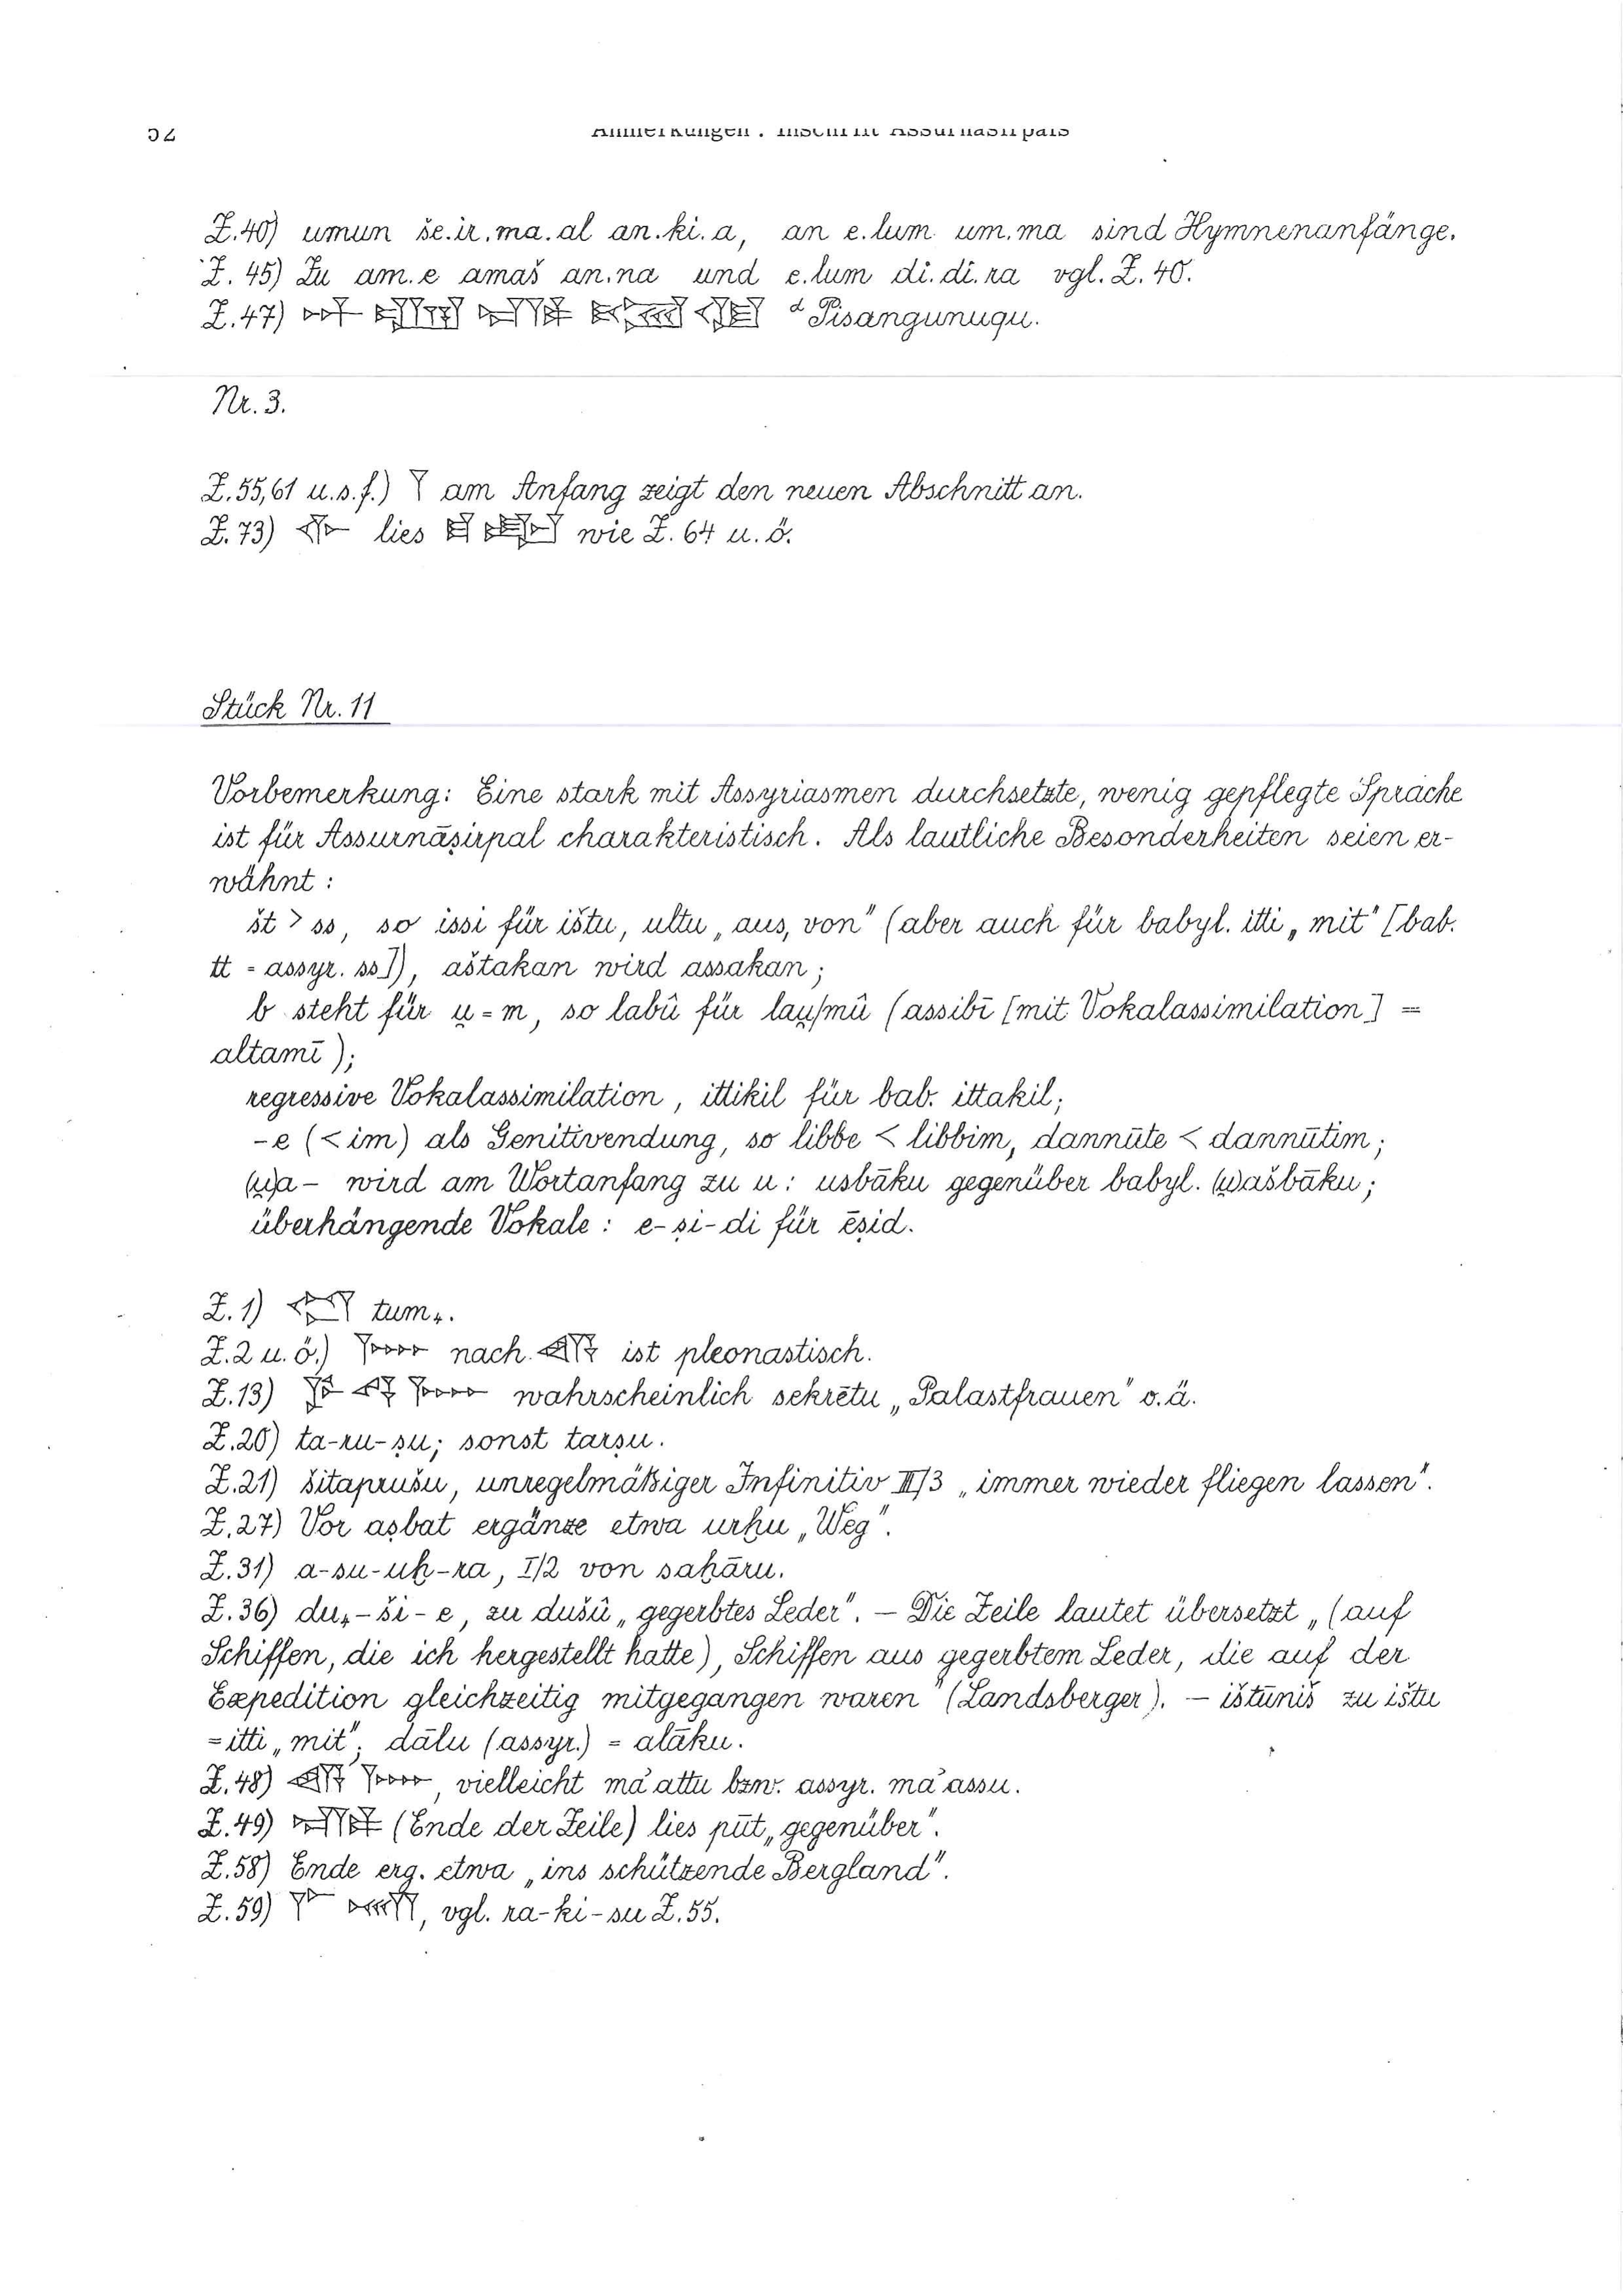 52 Anmerkungen: Inschrift Assurnasirpals
Z.40) umun še.ir.ma.al an.ki.a, an e.lum um.ma sind Hymnenanfänge.
Z.45) Zu am.e amaš an.na und e.lum di.di.ra vgl. Z.40.
Z.47) ᵈPisangunuqu.
Nr. 3.
Z.55,61 u.s.f.) 𒁹 am Anfang zeigt den neuen Abschnitt an.
Z.73) lies wie Z.64 u.ö.
Stück Nr. 11
Vorbemerkung: Eine stark mit Assyriasmen durchsetzte, wenig gepflegte Sprache
ist für Assurnāṣirpal charakteristisch. Als lautliche Besonderheiten seien er-
wähnt:
št > ss, so issi für ištu, ultu „aus, von" (aber auch für babyl. itti „mit" [bab.
tt = assyr. ss]), aštakan wird assakan;
b steht für u̯ = m, so labû für lau̯/mû (assibī [mit Vokalassimilation] =
altamī);
regressive Vokalassimilation, ittikil für bab. ittakil;
-e (< im) als Genitivendung, so libbe < libbim, dannūte < dannūtim;
(u̯)a- wird am Wortanfang zu u: usbāku gegenüber babyl. (w)ašbāku;
überhängende Vokale: e-ṣi-di für ēṣid.
Z.1) tum₄.
Z.2 u.ö.) 𒈨𒌍 nach ist pleonastisch.
Z.13) 𒈨𒌍 wahrscheinlich sekrētu „Palastfrauen" o.ä.
Z.20) ta-ru-ṣu; sonst tarṣu.
Z.21) šitaprušu, unregelmäßiger Infinitiv III/3 „immer wieder fliegen lassen".
Z.27) Vor aṣbat ergänze etwa urḫu „Weg".
Z.31) a-su-uḫ-ra, I/2 von saḫāru.
Z.36) du₈-ši-e, zu dušû „gegerbtes Leder". — Die Zeile lautet übersetzt „(auf
Schiffen, die ich hergestellt hatte), Schiffen aus gegerbtem Leder, die auf der
Expedition gleichzeitig mitgegangen waren" (Landsberger). — ištūniš zu ištu
= itti „mit". dâlu (assyr.) = alāku.
Z.48) 𒈨𒌍, vielleicht ma'attu bzw. assyr. ma'assu.
Z.49) (Ende der Zeile) lies pūt „gegenüber".
Z.58) Ende erg. etwa „ins schützende Bergland".
Z.59) vgl. ra-ki-su Z.55.